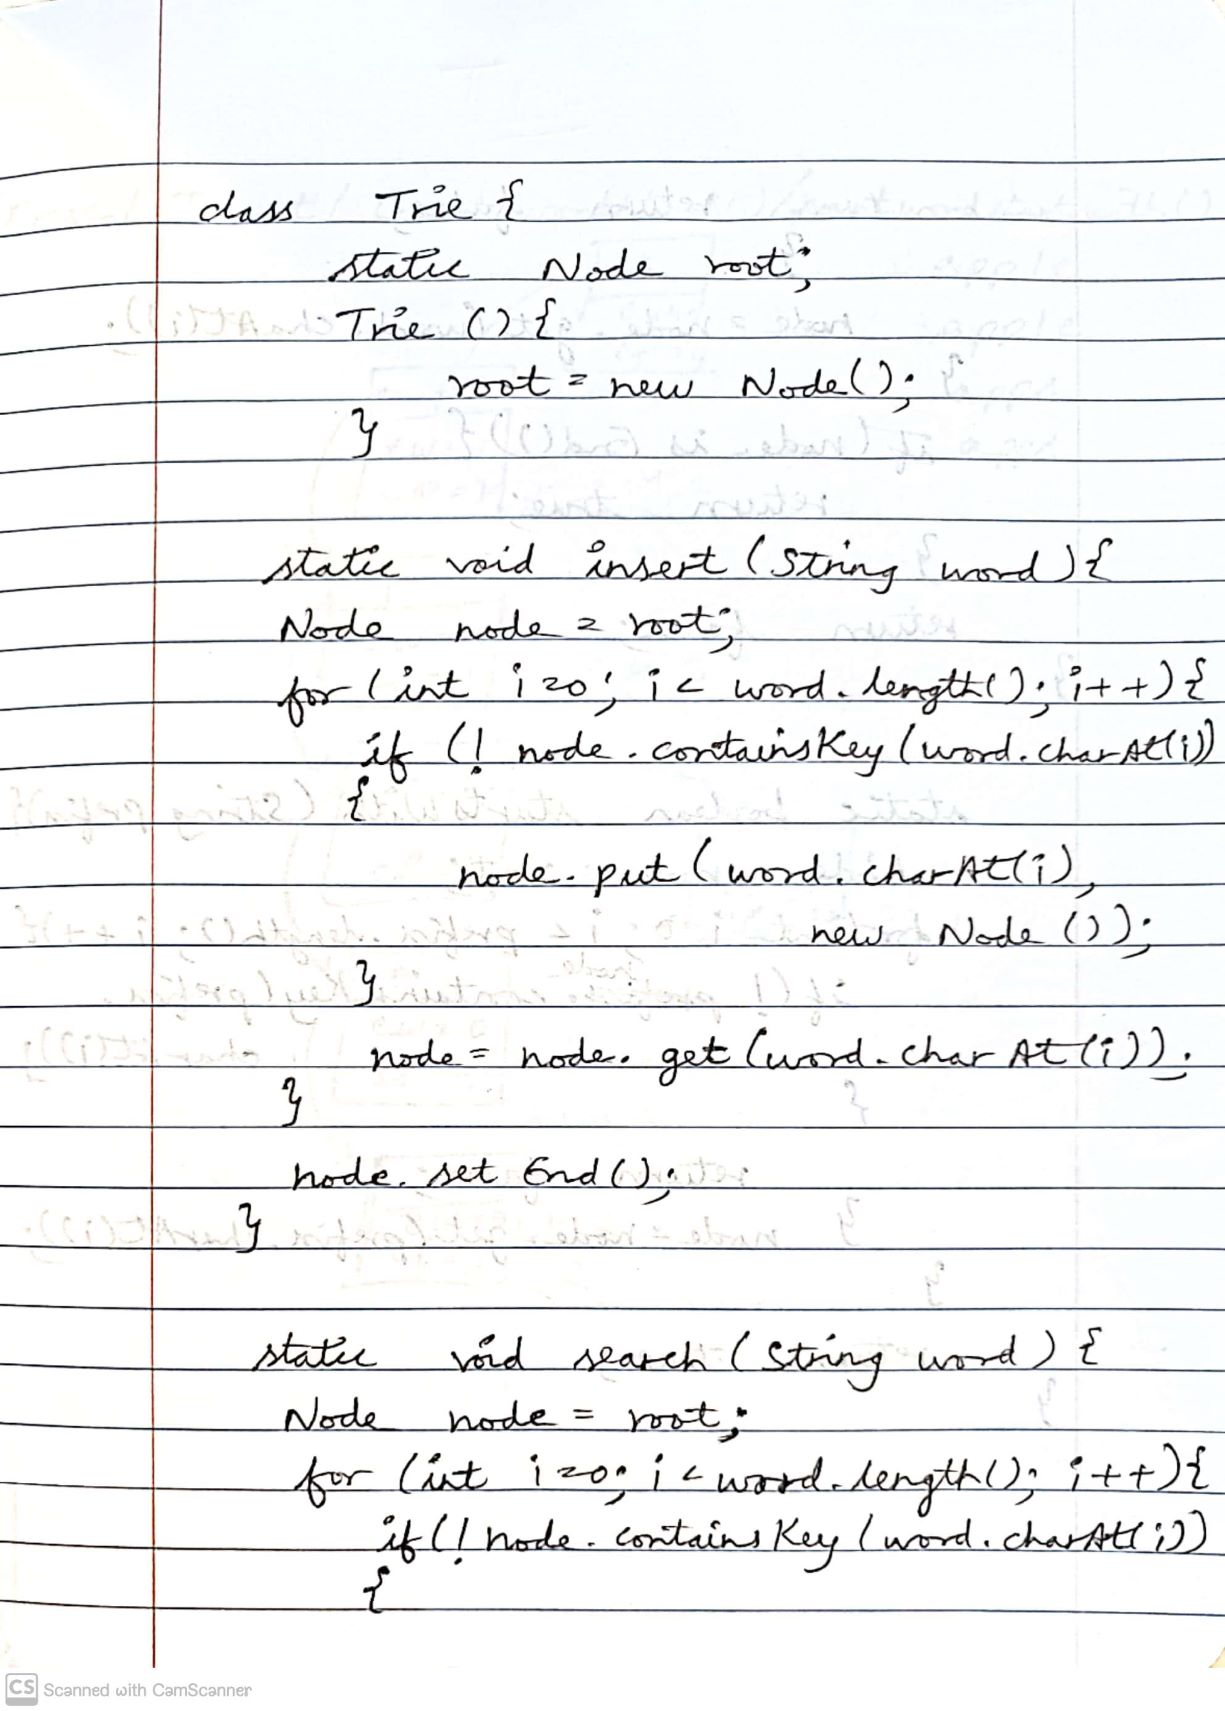 class Trie {
static Node root;
Trie () {
root = new Node();
}
static void insert (String word) {
Node node = root;
for (int i=0; i < word.length(); i++) {
if (! node.containsKey (word.charAt(i))
{
node.put (word.charAt(i),
new Node ());
}
node = node.get (word.charAt(i));
}
node.setEnd();
}
static void search (String word) {
Node node = root;
for (int i=0; i < word.length(); i++) {
if (! node.containsKey (word.charAt(i))
{
CS Scanned with CamScanner